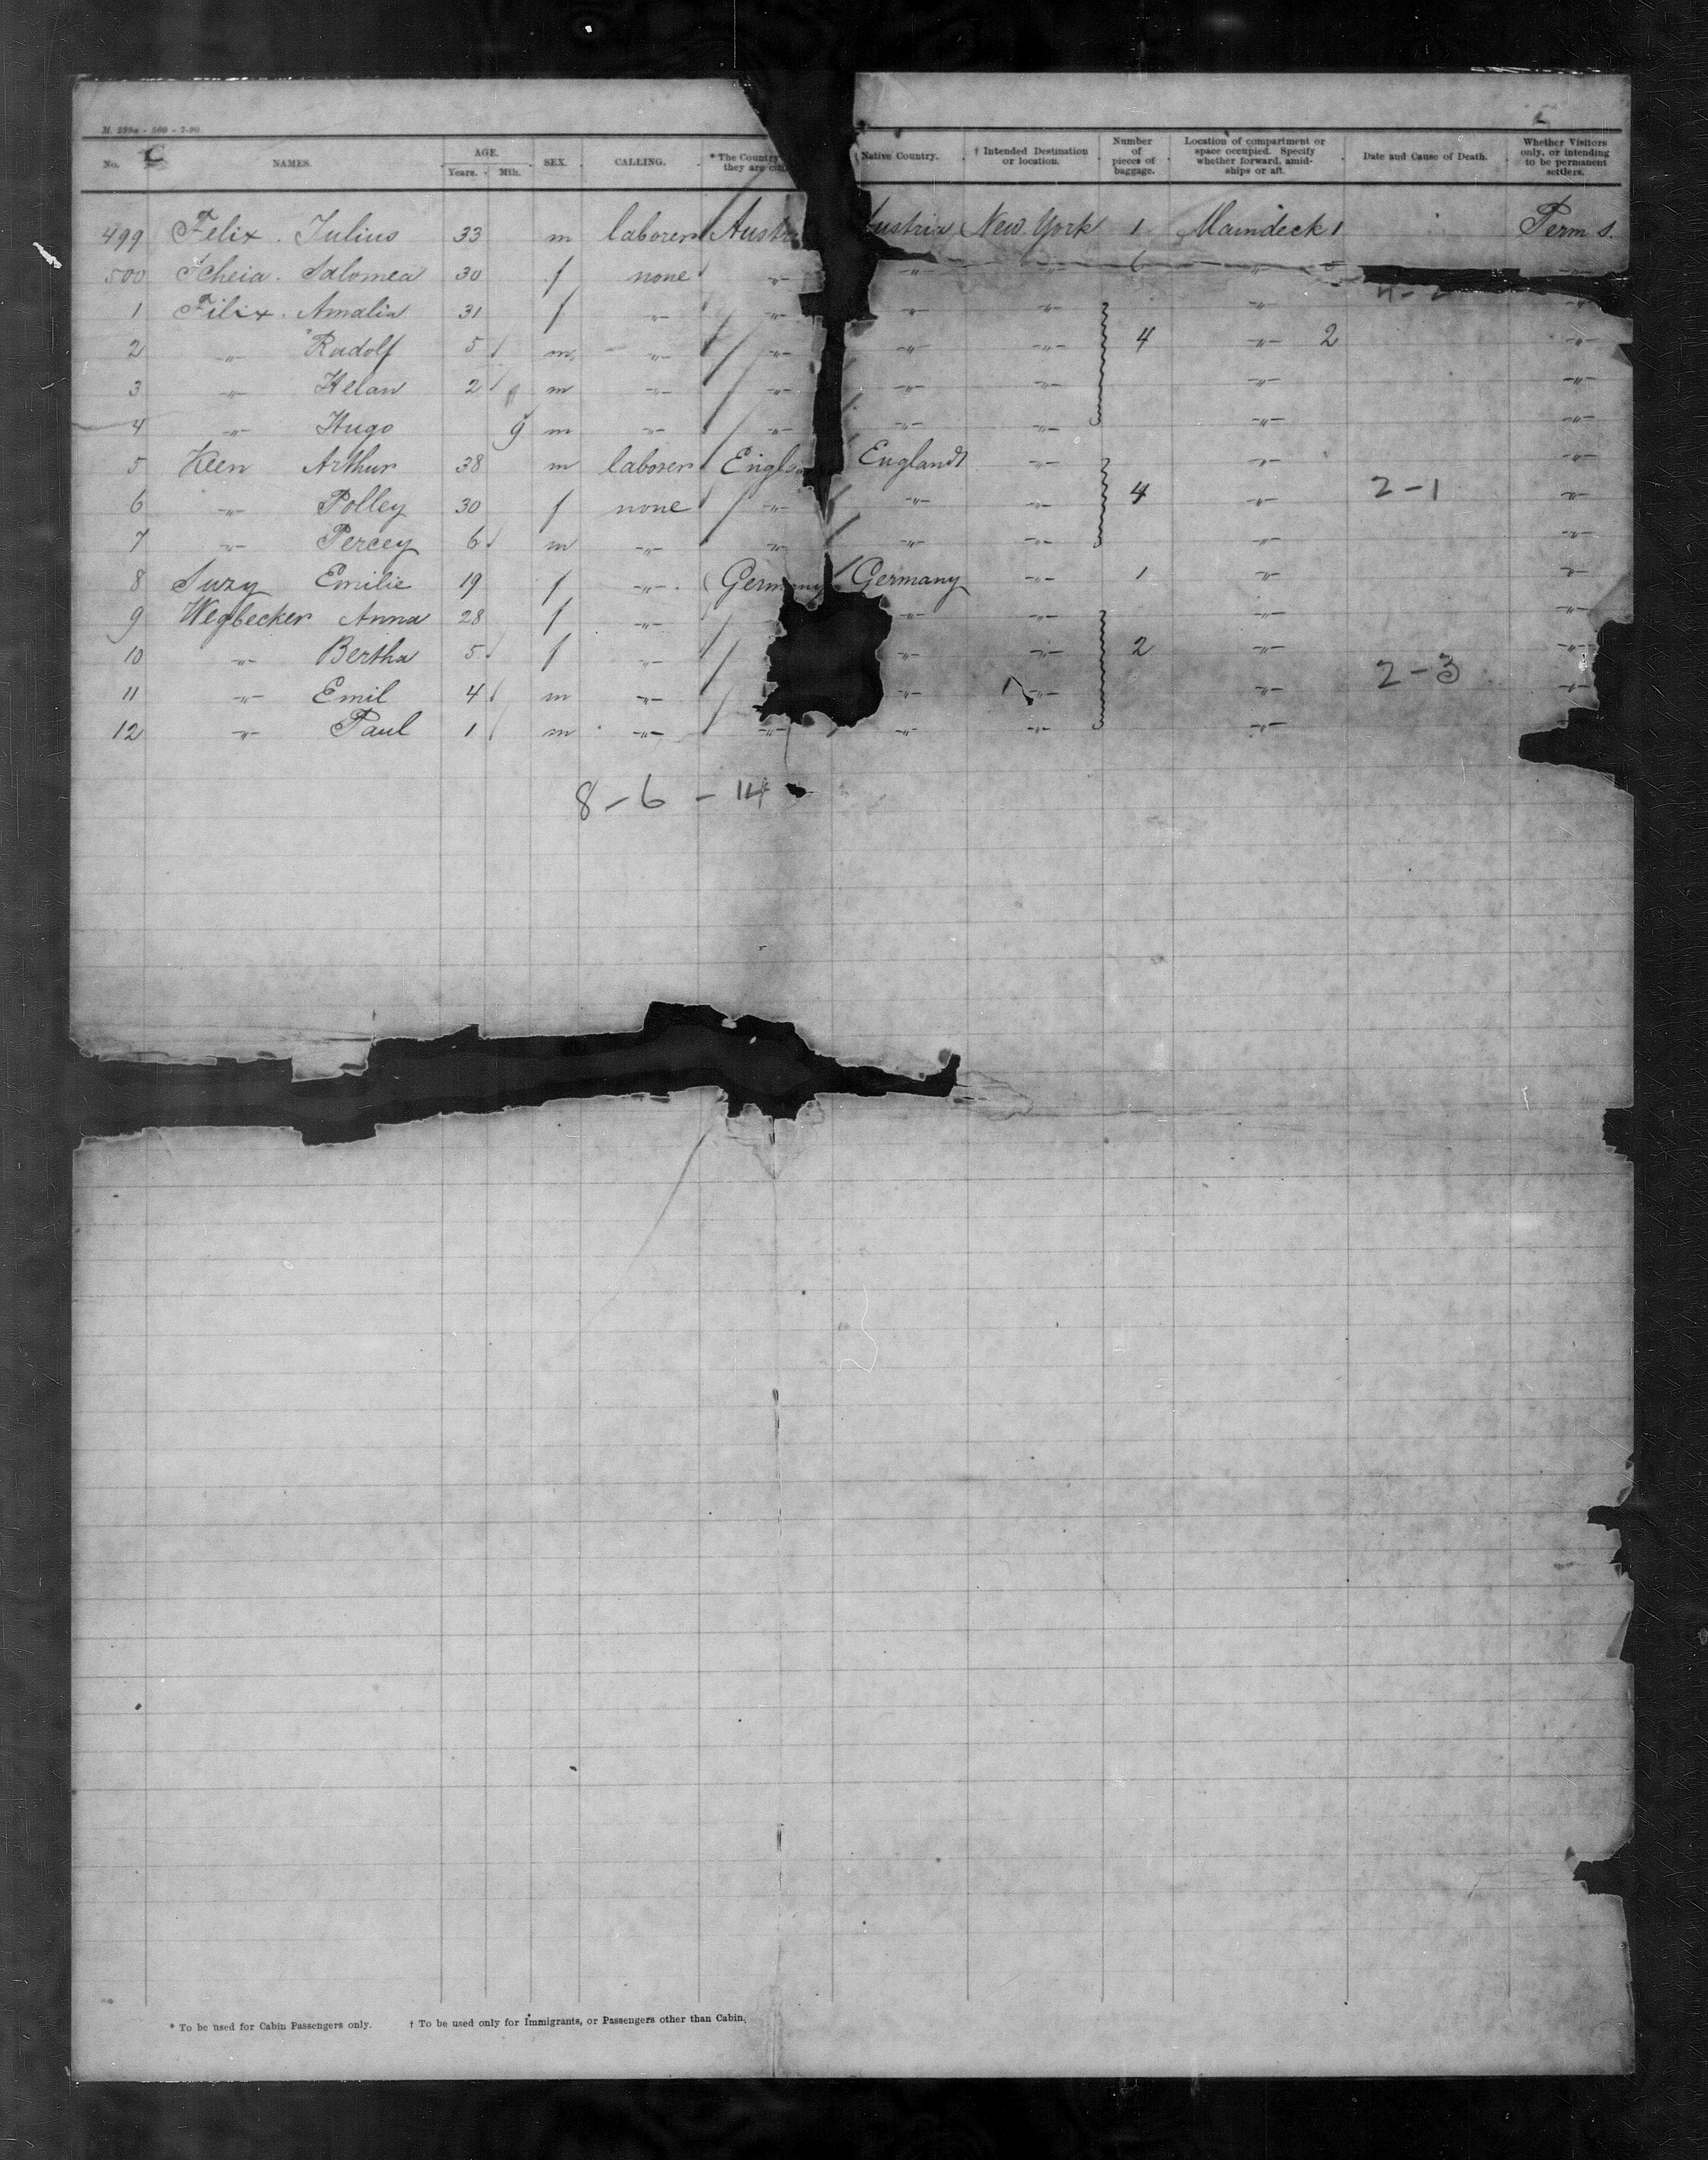 M. 299a - 500 - 7-90
No. C NAMES. AGE. Years. Mth. SEX. CALLING. * The Country they are Native Country. † Intended Destination or location. Number of pieces of baggage. Location of compartment or space occupied. Specify whether forward, amidships or aft. Date and Cause of Death. Whether Visitors only, or intending to be permanent settlers.
499 Felix Julius 33 m laborer Austria New York 1 Maindeck 1 Perm s.
500 Scheia Salomea 30 f none -"- -"- -"- 6 -"- -"-
1 Filix Amalia 31 f -"- -"- -"- -"- -"- -"-
2 -"- Rudolf 5 m -"- -"- -"- -"- 4 -"- 2 -"-
3 -"- Helan 2 m -"- -"- -"- -"- -"- -"-
4 -"- Hugo 9 m -"- -"- -"- -"- -"- -"-
5 Keen Arthur 38 m laborer England -"- -"- -"-
6 -"- Polley 30 f none -"- -"- -"- 4 -"- 2-1 -"-
7 -"- Percey 6 m -"- -"- -"- -"- -"- -"-
8 Suzy Emilie 19 f -"- Germany Germany -"- 1 -"- -"-
9 Wegbecker Anna 28 f -"- -"- -"- -"- -"-
10 -"- Bertha 5 f -"- -"- -"- 2 -"- -"-
11 -"- Emil 4 m -"- -"- -"- -"- 2-3 -"-
12 -"- Paul 1 m -"- -"- -"- -"- -"-
8-6-14
* To be used for Cabin Passengers only. † To be used only for Immigrants, or Passengers other than Cabin.